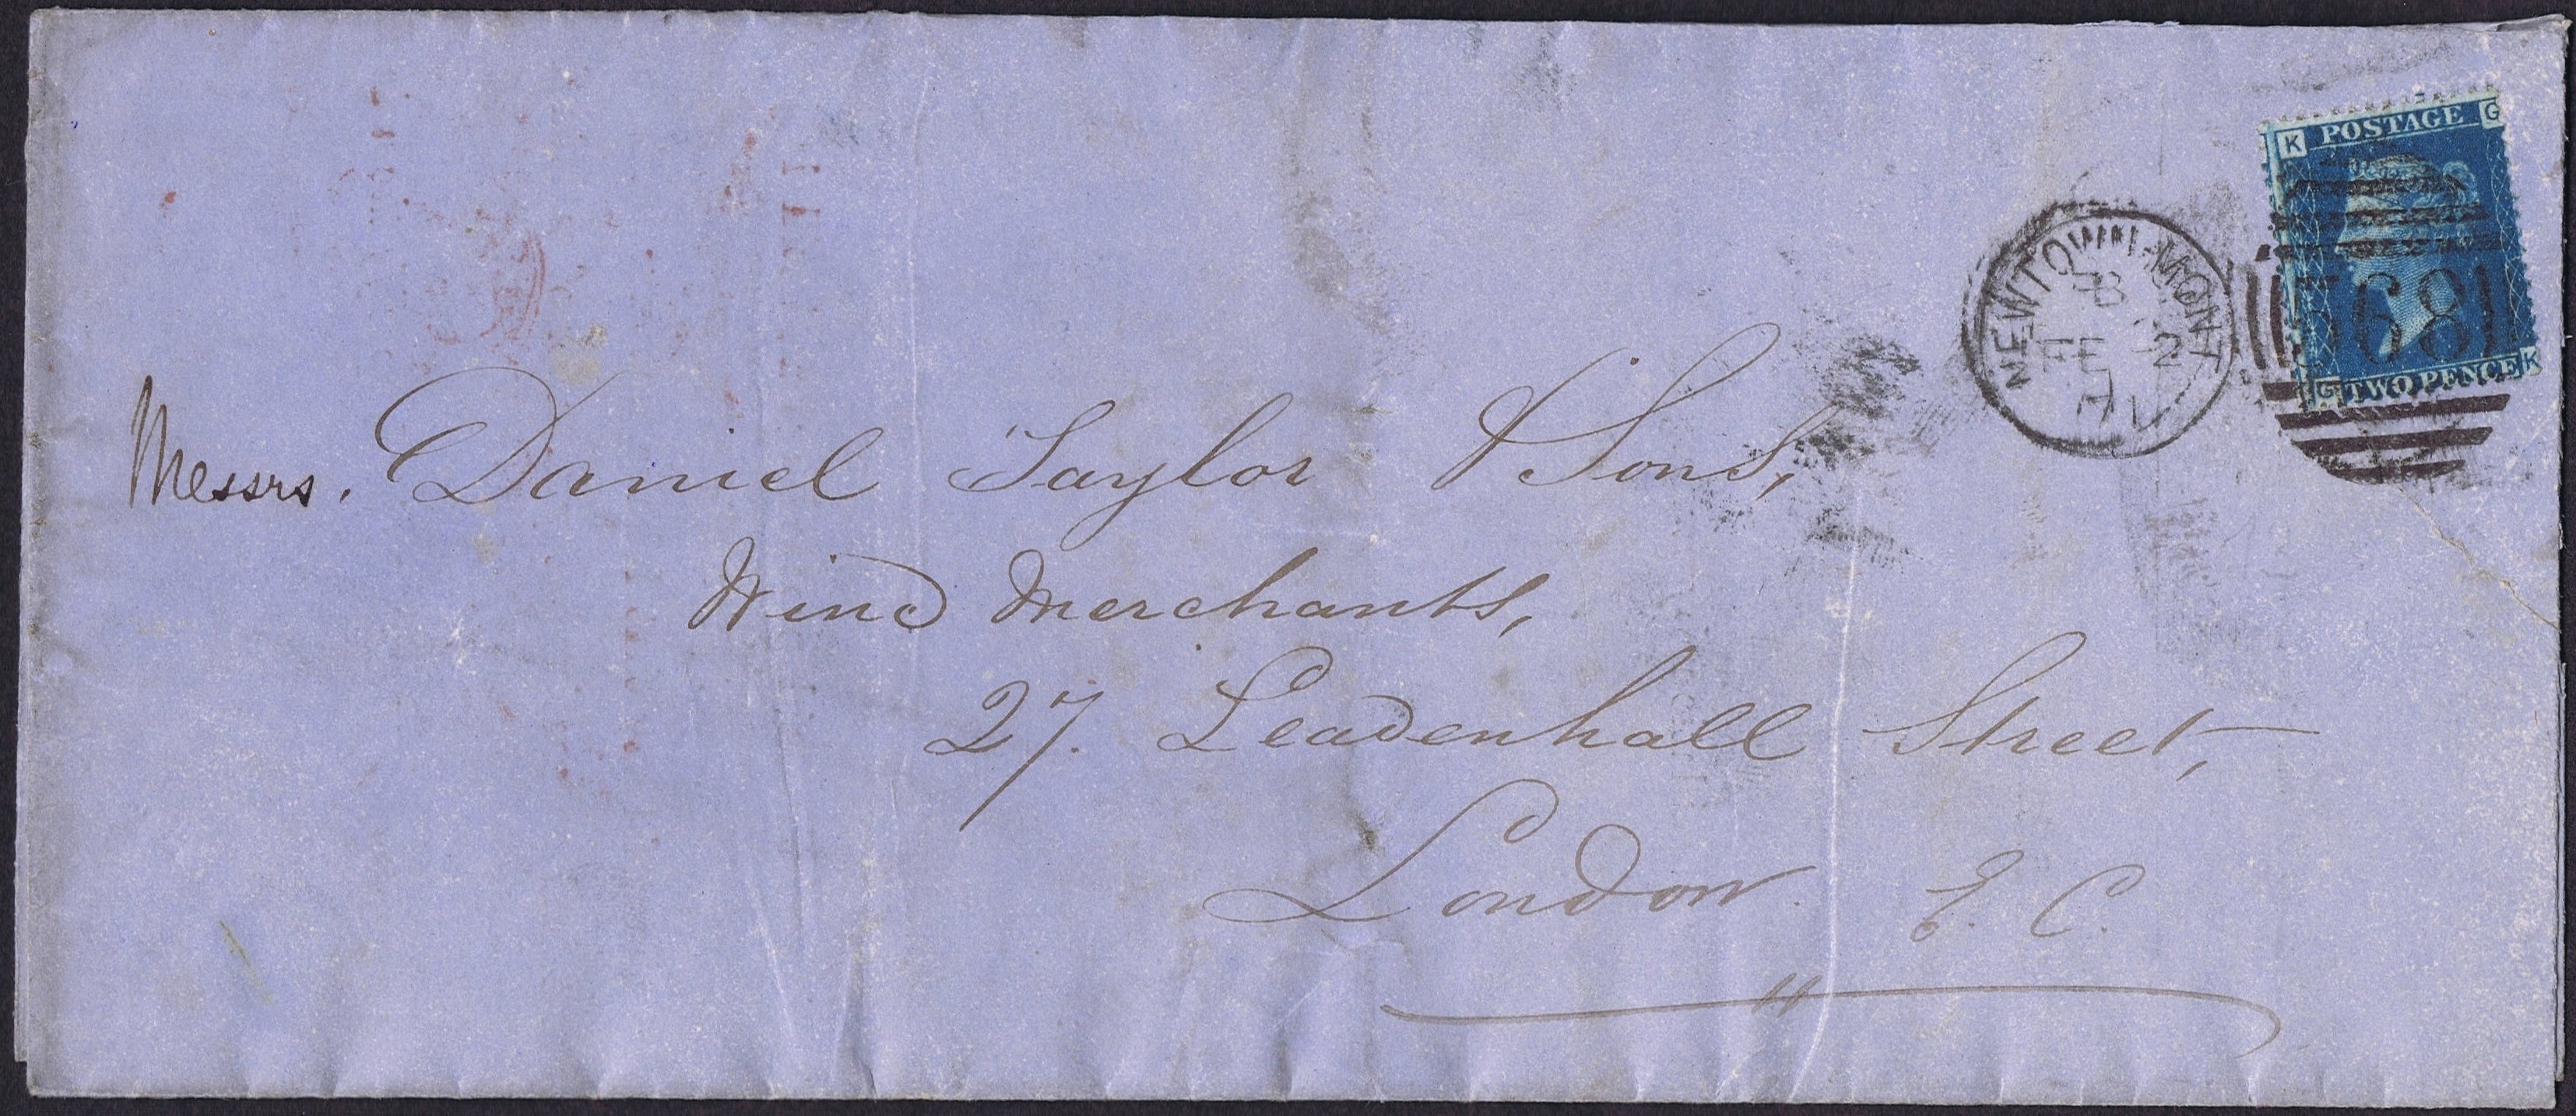 K POSTAGE G
NEWTOWN-MONT
B
FE 2
71
568
G TWO PENCE K
Messrs. Daniel Taylor & Sons,
Wine Merchants,
27. Leadenhall Street,
London. E. C.